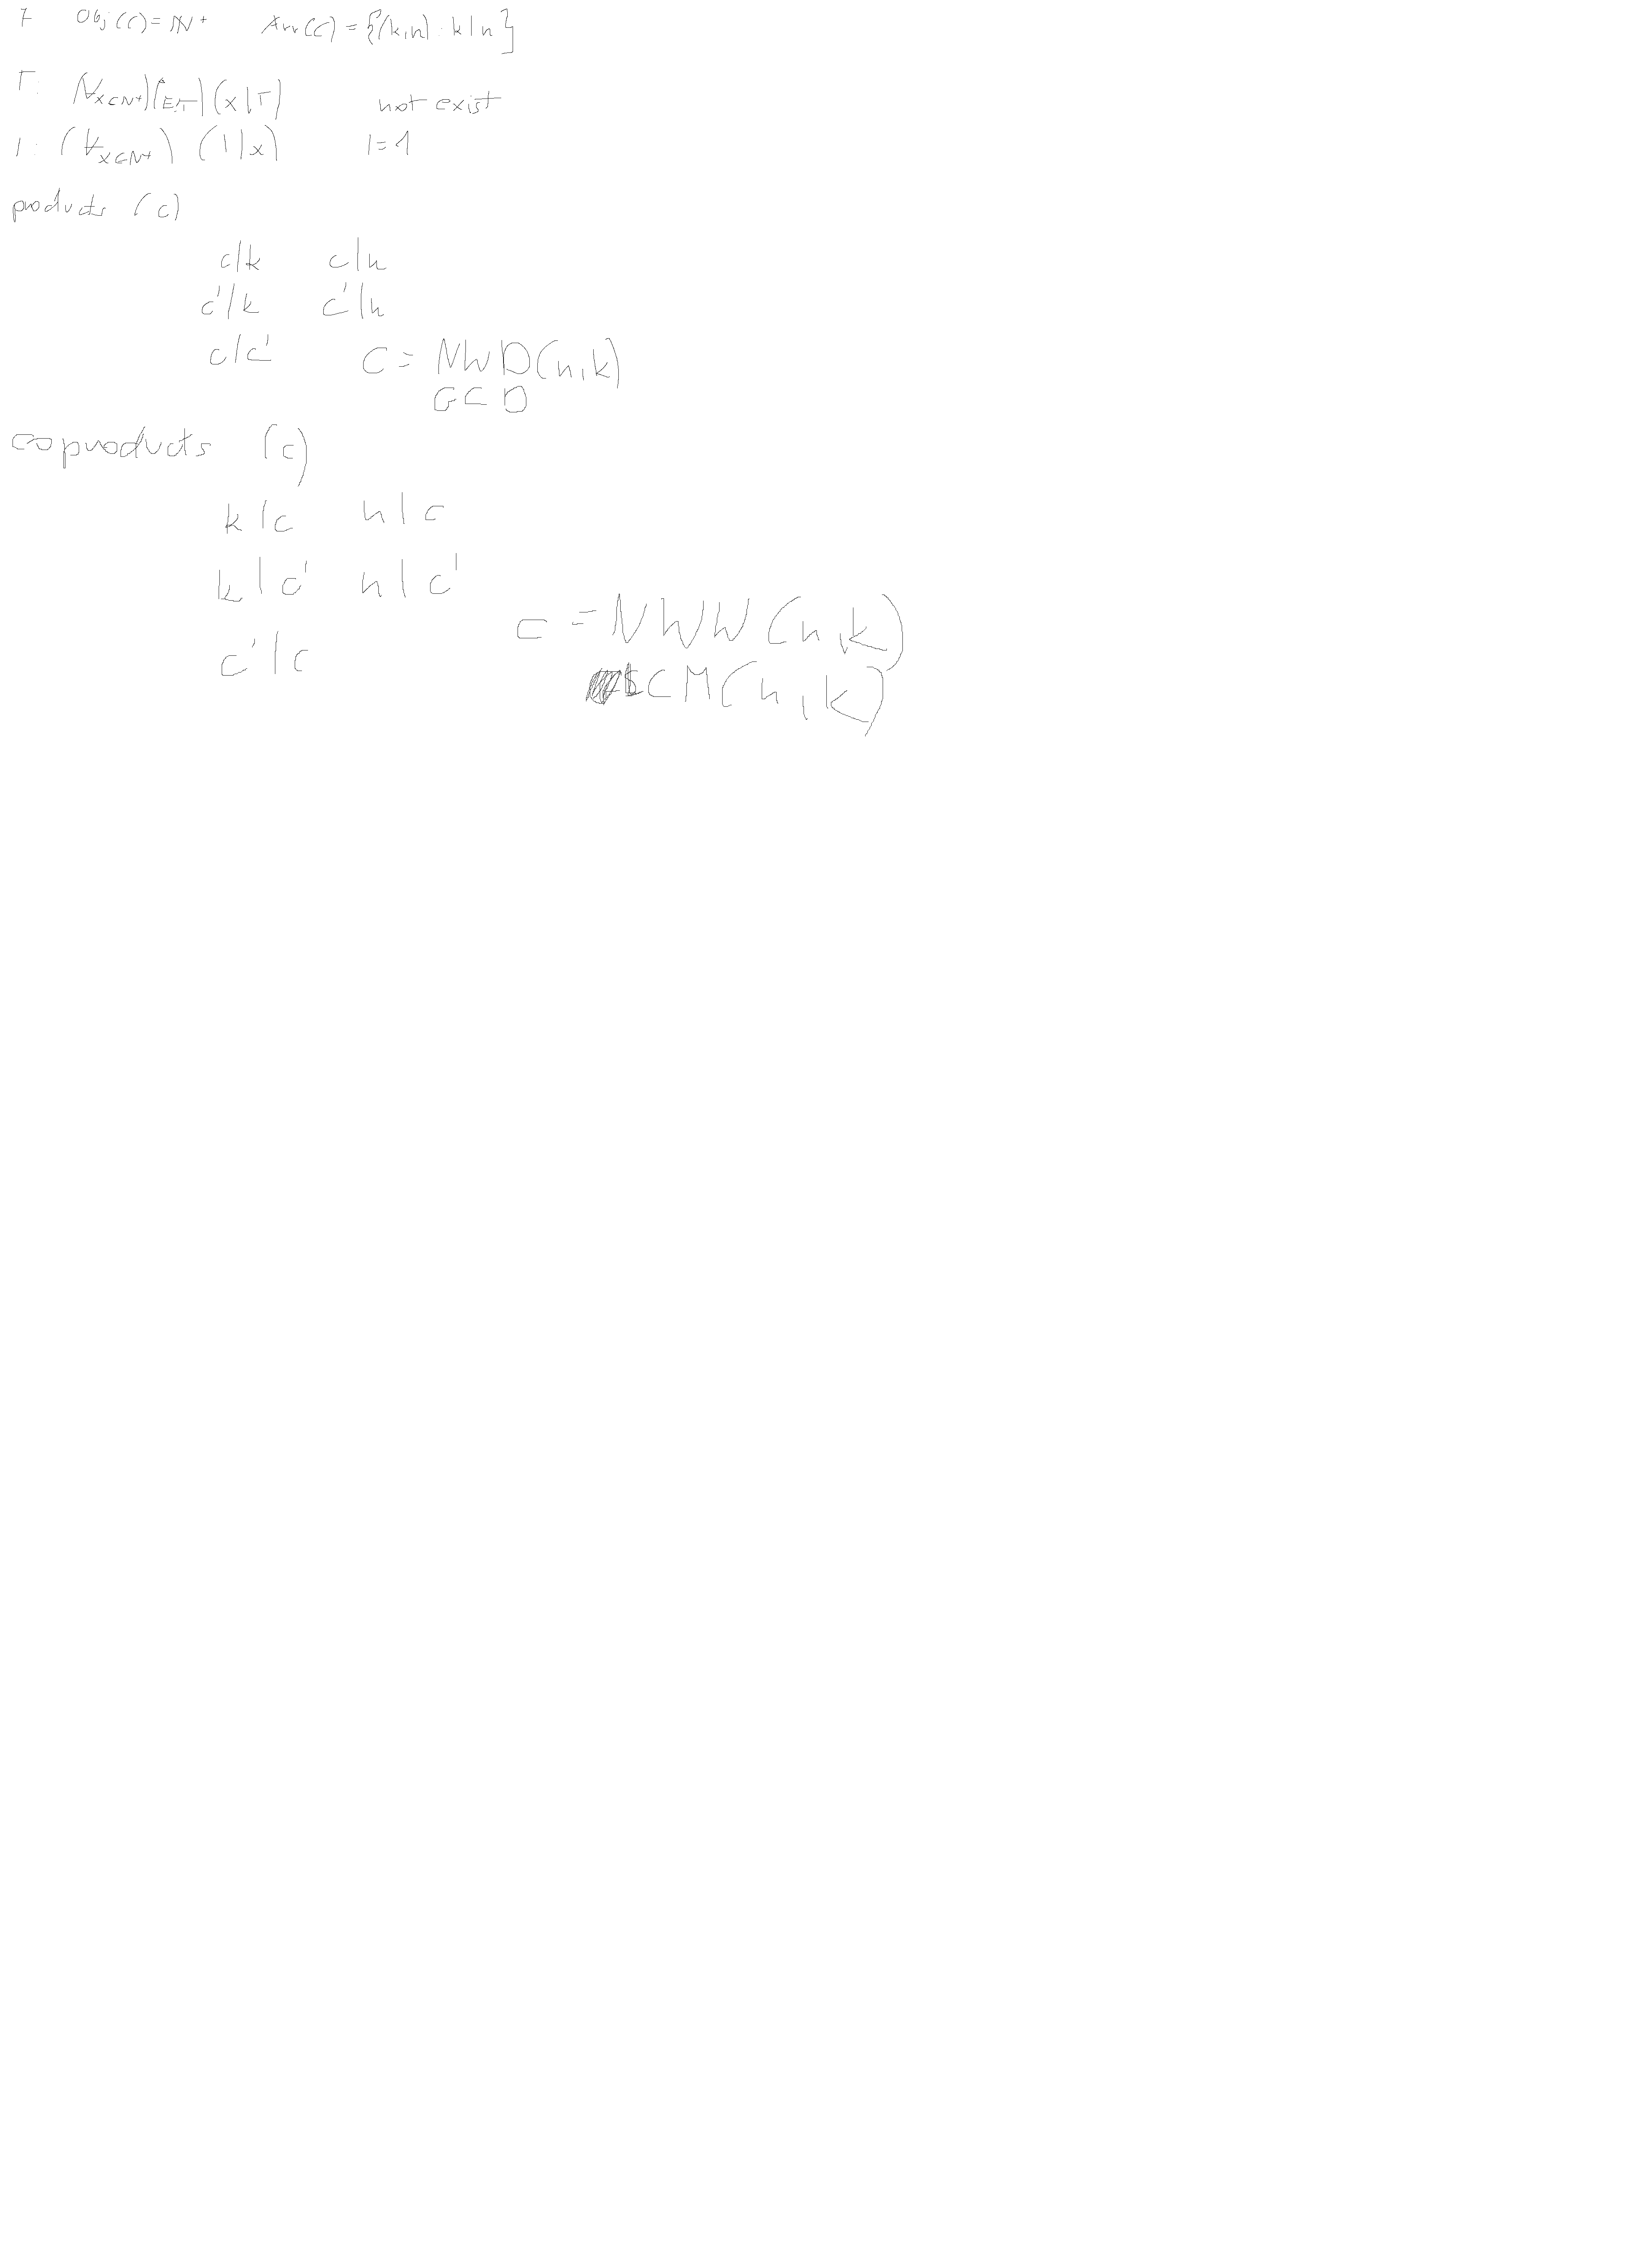 7 Obj(C)=ℕ⁺ Arr(C)={(k,n): k|n}
T: (∀x∈N⁺)(∃!T)(x|T) not exist
I: (∀x∈N⁺) (I|x) I=1
products (c)
c|k c|n
c'|k c'|n
c|c' C = NWD(n,k)
GCD
coproducts (c)
k|c n|c
k|c' n|c'
c = NWW(n,k)
c'|c
LCM(n,k)